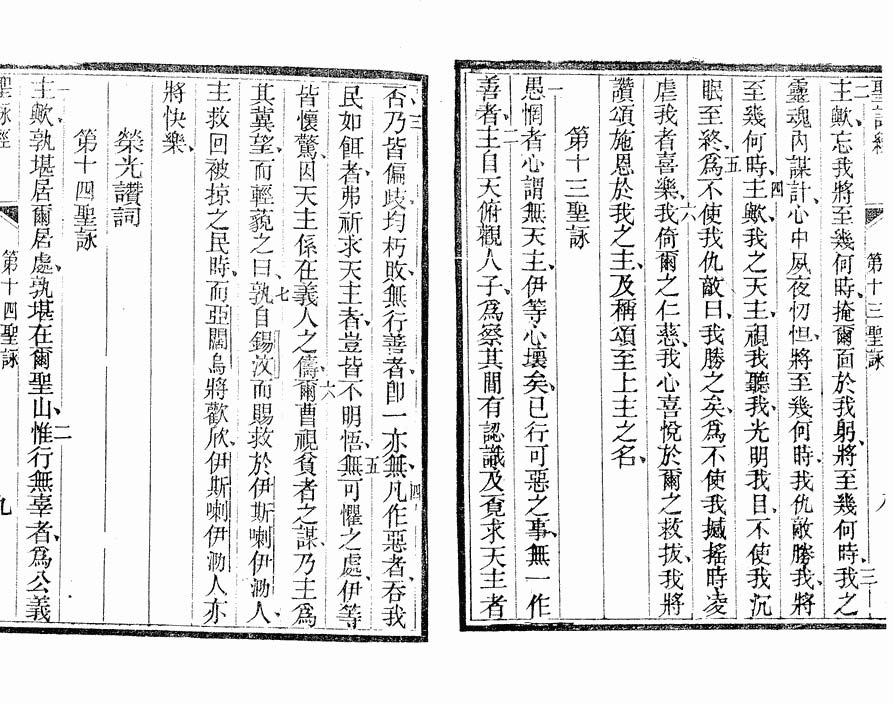 聖詠經 第十三聖詠 八
二主歟、忘我將至幾何時、掩爾面於我躬、將至幾何時、三我之
靈魂內謀計、心中夙夜忉怛、將至幾何時、我仇敵勝我、將
至幾何時、四主歟、我之天主、視我聽我、光明我目、不使我沉
眠至終、五爲不使我仇敵曰、我勝之矣、爲不使我撼搖時、凌
虐我者喜樂、六我倚爾之仁慈、我心喜悅於爾之救拔、我將
讚頌施恩於我之主、及稱頌至上主之名、
第十三聖詠
一愚惘者心謂無天主、伊等心壞矣、已行可惡之事、無一作
善者、二主自天俯觀人子、爲察其間有認識及覓求天主者
否、三乃皆偏歧、均朽敗、無行善者、卽一亦無、四凡作惡者、吞我
民如餌者、弗祈求天主者、豈皆不明悟、五無可懼之處、伊等
皆懷驚、因天主係在義人之儔、六爾曹視貧者之謀、乃主爲
其冀望、而輕藐之曰、七孰自錫汶而賜救於伊斯喇伊泐人、
主救回被掠之民時、而亞闊烏將歡欣、伊斯喇伊泐人亦
將快樂、
榮光讚詞
第十四聖詠
一主歟、孰堪居爾居處、孰堪在爾聖山、二惟行無辜者、爲公義
聖詠經 第十四聖詠 九